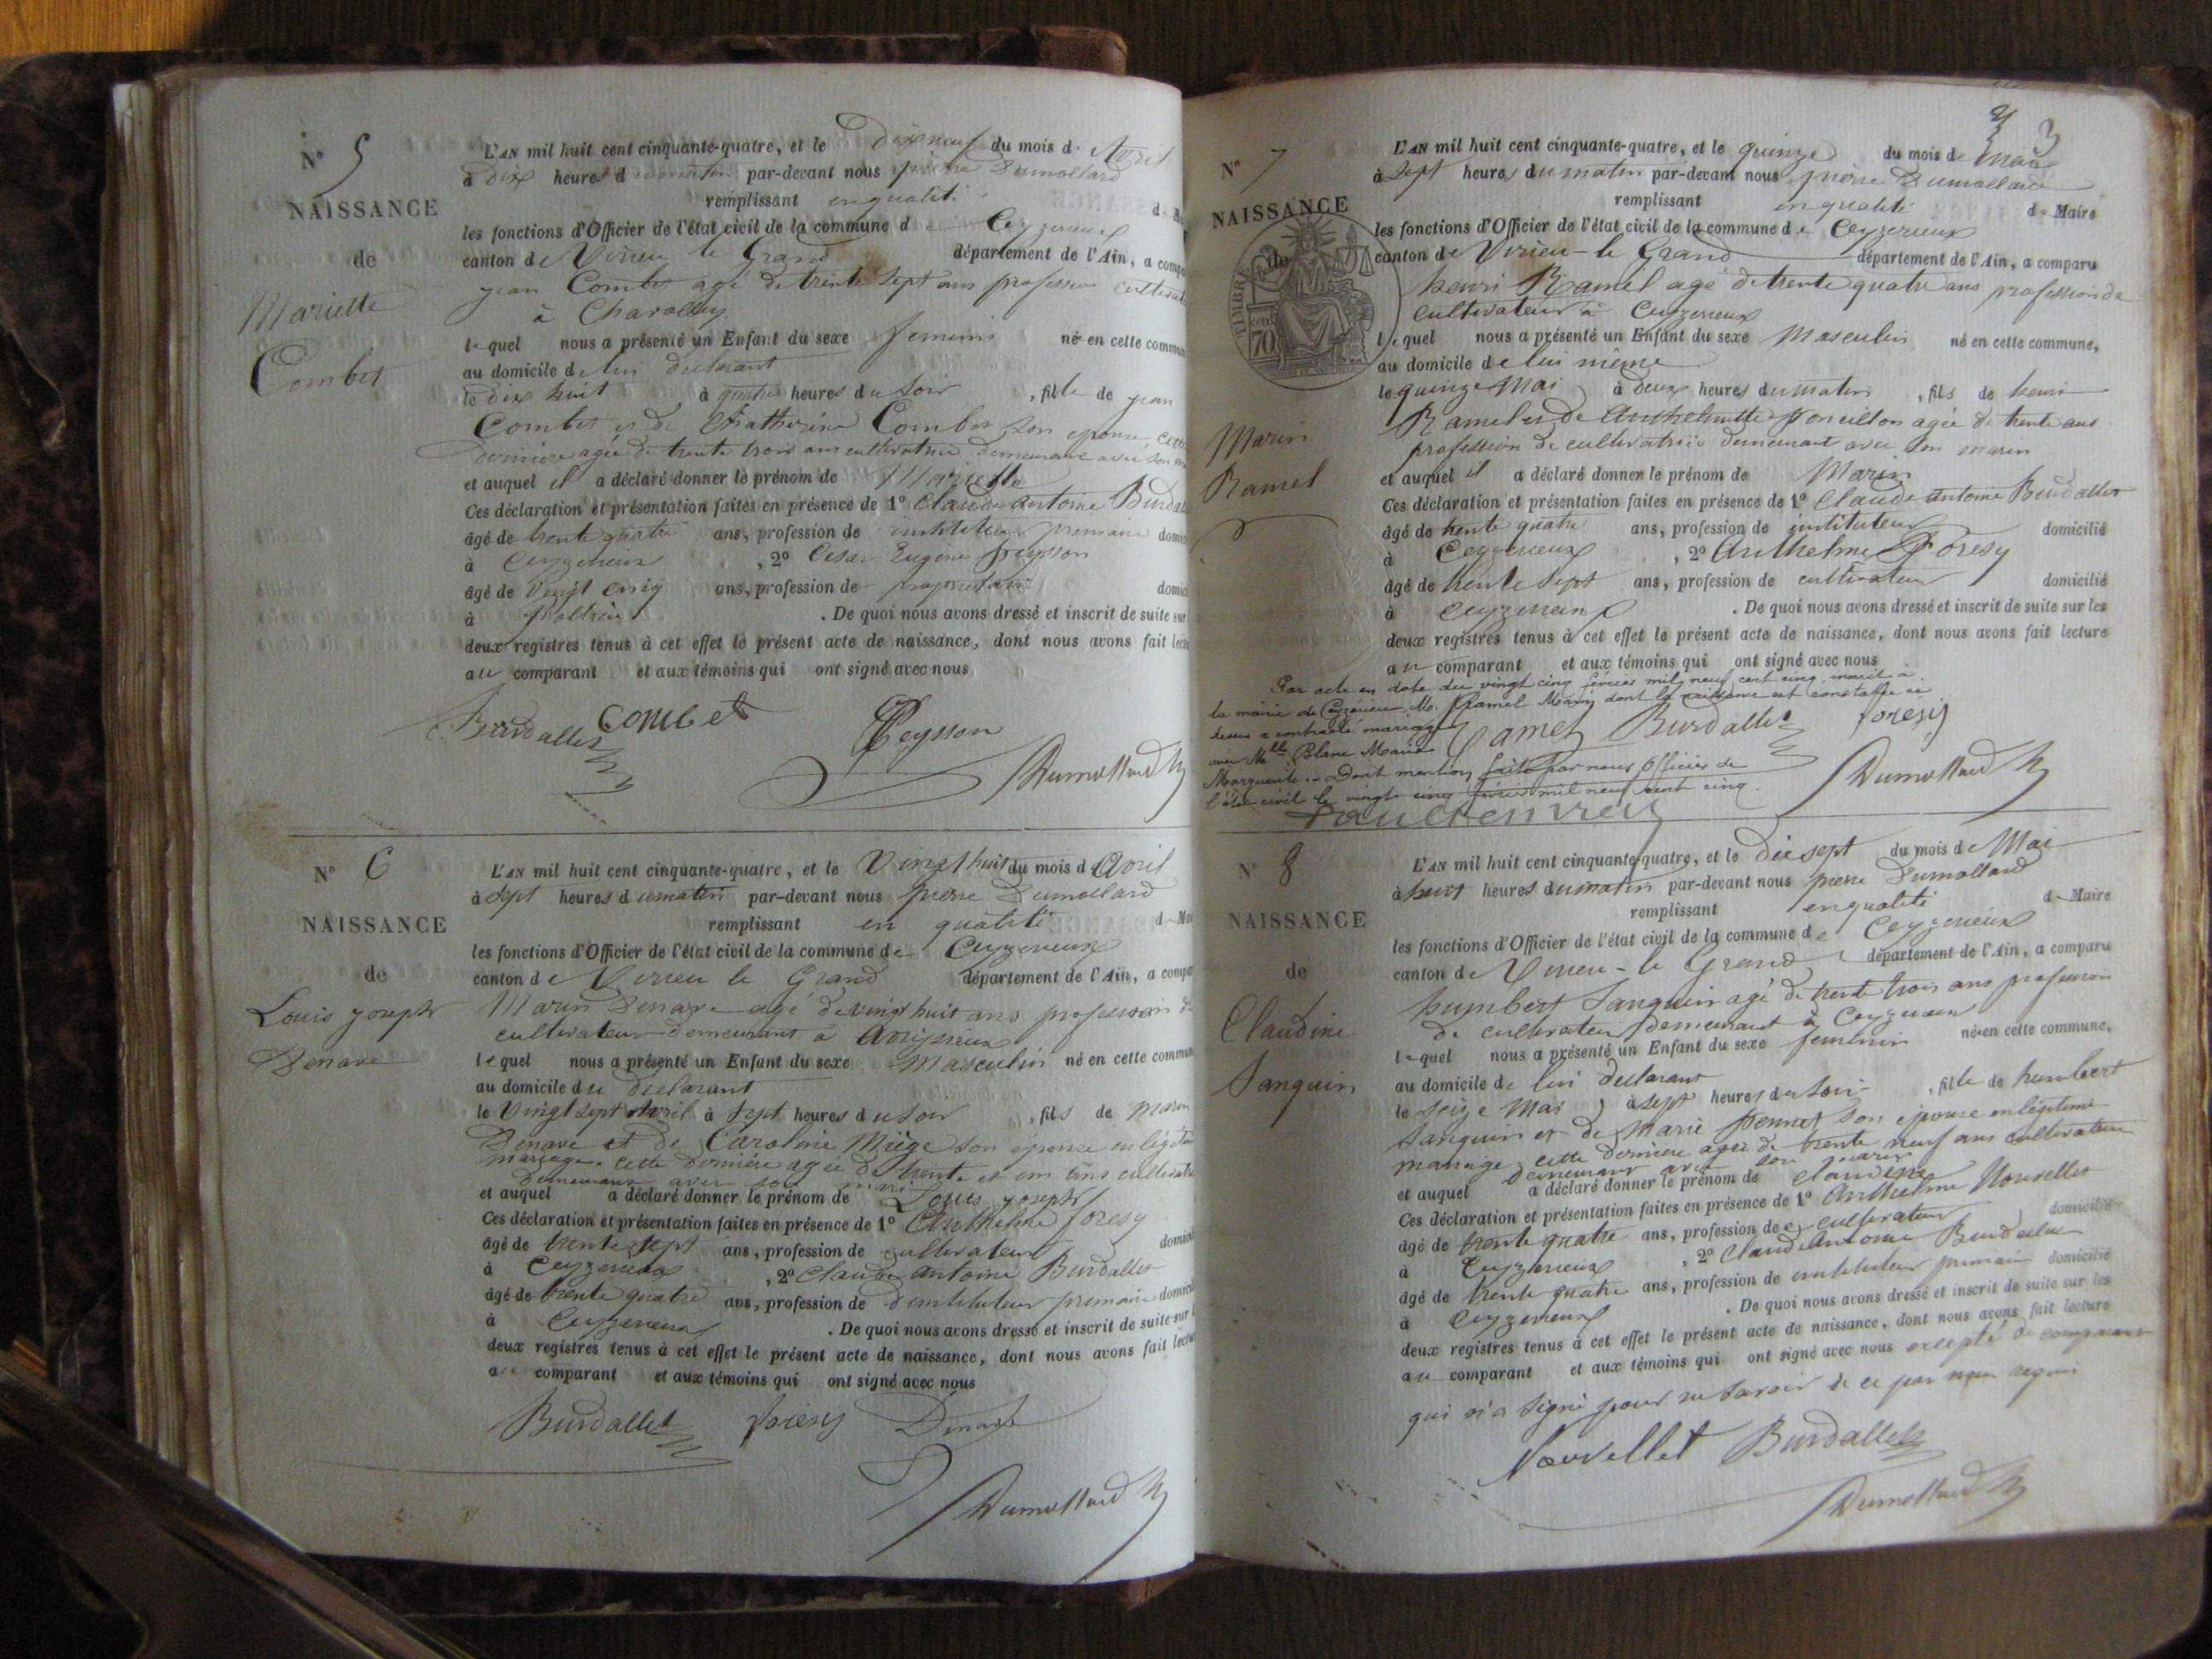 N° 5
NAISSANCE
de
Mariette
Combet
L'AN mil huit cent cinquante-quatre, et le Dix neuf du mois d' Avril
à Dix heures du matin par-devant nous pierre Dumollard
remplissant en qualité d
les fonctions d'Officier de l'état civil de la commune de Ceyzerieux
canton de Virieu le Grand département de l'Ain, a
jean Combet agé de trente sept ans profession
à Charolley
lequel nous a présenté un Enfant du sexe feminin né en cette
au domicile de lui declarant
le dix huit à quatre heures du soir, fille de jean
Combet et de Chatherine Combet son epouse,
derniere agée de trente trois ans cultivatrice demeurant avec son
et auquel il a déclaré donner le prénom de Mariette
Ces déclaration et présentation faites en présence de 1° Claude antoine
âgé de trente quatre ans, profession de instituteur primaire
à Ceyzerieux, 2° Cesar Eugene Peysson
âgé de Vingt cinq ans, profession de proprietaire
à . De quoi nous avons dressé et inscrit de suite sur
deux registres tenus à cet effet le présent acte de naissance, dont nous avons fait
au comparant et aux témoins qui ont signé avec nous
Burdallet Combet Peysson
Dumollard
N° 6
NAISSANCE
de
Louis joseph
Denave
L'AN mil huit cent cinquante-quatre, et le Vingt huit du mois d Avril
à sept heures du matin par-devant nous pierre Dumollard
remplissant en qualité d
les fonctions d'Officier de l'état civil de la commune de Ceyzerieux
canton de Virieu le Grand département de l'Ain, a
Marin Denave agé de vingt huit ans profession d
cultivateur demeurant à Avrissieux
lequel nous a présenté un Enfant du sexe Masculin né en cette
au domicile du declarant
le Vingt sept Avril à sept heures du soir, fils de Marin
Denave et de Caroline Miège son epouse en
mariage, cette derniere agée de trente et un ans
demeurant avec son mari
et auquel a déclaré donner le prénom de Louis joseph
Ces déclaration et présentation faites en présence de 1° Anthelme foresy
âgé de trente sept ans, profession de cultivateur
à Ceyzerieux, 2° Claude antoine Burdallet
âgé de trente quatre ans, profession de d'instituteur primaire
à Ceyzerieux . De quoi nous avons dressé et inscrit de suite sur
deux registres tenus à cet effet le présent acte de naissance, dont nous avons fait
au comparant et aux témoins qui ont signé avec nous
Burdallet foresy Denave
Dumollard
3
N° 7
NAISSANCE
de
TIMBRE
70
Marin
Ramel
L'AN mil huit cent cinquante-quatre, et le quinze du mois de Mai
à sept heures du matin par-devant nous pierre Dumollard
remplissant en qualité de Maire
les fonctions d'Officier de l'état civil de la commune de Ceyzerieux
canton de Virieu-le Grand département de l'Ain, a comparu
henri Ramel agé de trente quatre ans profession de
cultivateur à Ceyzerieux
lequel nous a présenté un Enfant du sexe Masculin né en cette commune,
au domicile de lui même
le quinze Mai à deux heures du matin, fils de henri
Ramel et de Anthelmette agée de trente ans
profession de cultivatrice demeurant avec son marin
et auquel il a déclaré donner le prénom de Marin
Ces déclaration et présentation faites en présence de 1° Claude antoine Burdallet
âgé de trente quatre ans, profession de instituteur domicilié
à Ceyzerieux, 2° Anthelme Foresy
âgé de trente sept ans, profession de cultivateur domicilié
à Ceyzerieux . De quoi nous avons dressé et inscrit de suite sur les
deux registres tenus à cet effet le présent acte de naissance, dont nous avons fait lecture
au comparant et aux témoins qui ont signé avec nous
Par acte en date du vingt cinq février mil neuf cent cinq, inscrit à
la mairie de Ceyzérieu, M. Ramel Marin dont la naissance est constatée ci
dessus a contracté mariage
avec Melle Blanc Marie
Marguerite. Dont mention faite par nous Officier de
l'état civil le vingt cinq février mil neuf cent cinq.
Ramel Burdallet foresy
Dumollard
N° 8
NAISSANCE
de
Claudine
Sanguin
L'AN mil huit cent cinquante-quatre, et le Dix sept du mois de Mai
à huit heures du matin par-devant nous pierre Dumollard
remplissant en qualité de Maire
les fonctions d'Officier de l'état civil de la commune de Ceyzerieux
canton de Virieu-le Grand département de l'Ain, a comparu
humbert Sanguin agé de trente trois ans profession
de cultivateur demeurant à Ceyzerieux
lequel nous a présenté un Enfant du sexe feminin né en cette commune,
au domicile de lui declarant
le seize Mai à sept heures du soir, fille de humbert
Sanguin et de Marie son epouse en légitime
mariage, cette derniere agée de trente neuf ans cultivatrice
demeurant avec son marin
et auquel a déclaré donner le prénom de claudine
Ces déclaration et présentation faites en présence de 1° Anthelme Nouvellet
âgé de trente quatre ans, profession de cultivateur domicilié
à Ceyzerieux, 2° Claude Antoine Burdallet
âgé de trente quatre ans, profession de instituteur primaire domicilié
à Ceyzerieux . De quoi nous avons dressé et inscrit de suite sur les
deux registres tenus à cet effet le présent acte de naissance, dont nous avons fait lecture
au comparant et aux témoins qui ont signé avec nous excepté le comparant
qui n'a signé pour ne savoir de ce par nous requis
Nouvellet Burdallet
Dumollard